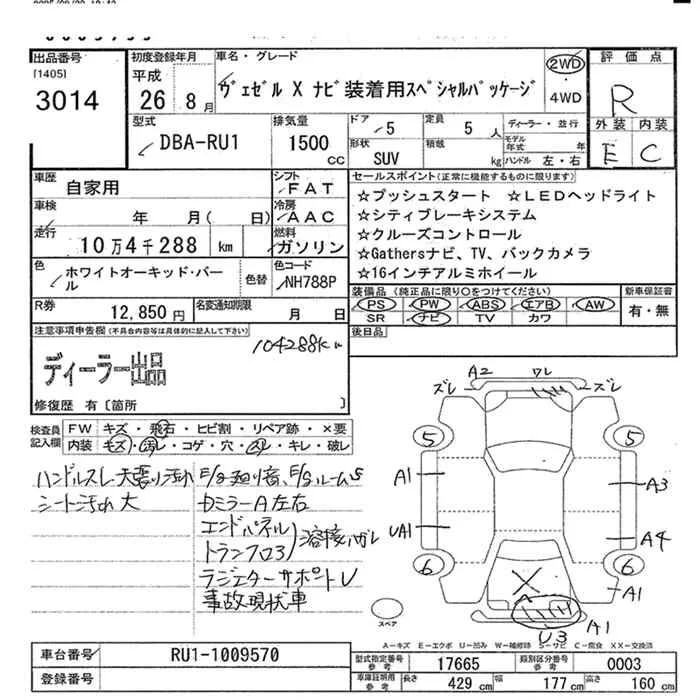 出品番号
[1405]
3014
初度登録年月
平成
26 8月
車名・グレード
ヴェゼル X ナビ装着用スペシャルパッケージ
2WD
4WD
評価点
R
外装 内装
E C
型式
DBA-RU1
排気量
1500
cc
ドア
5
定員
5 人
ディーラー・並行
形状
SUV
積載
kg
モデル年式 年
ハンドル 左・右
車歴
自家用
シフト
FAT
車検
年 月( 日)
冷房
AAC
走行
10万4千288 km
燃料
ガソリン
色
ホワイトオーキッド・パール
色替
色コード
NH788P
R券
12,850円
名変通知期限
月 日
セールスポイント(正常に機能するものに限ります)
☆プッシュスタート ☆LEDヘッドライト
☆シティブレーキシステム
☆クルーズコントロール
☆Gathersナビ、TV、バックカメラ
☆16インチアルミホイール
装備品 (純正品に限り○をつけてください)
PS PW ABS エアB AW
SR ナビ TV カワ
新車保証書
有・無
後日品
注意事項申告欄(不具合内容等は具体的に記入して下さい)
104288K
ディーラー出品
修復歴 有〔箇所 〕
検査員記入欄
FW キズ・飛石・ヒビ割・リペア跡・×要
内装 キズ・汚レ・コゲ・穴・スレ・キレ・破レ
ハンドルスレ 天張り汚れ
シート汚れ大
カミラーA左右
エンドパネル
トランフロア
溶接ハガレ
ラジエターサポート
事故現状車
A2 ワレ
ズレ ズレ
5 5
A1 A3
UA1 A4
6 6
A1
X
U3 A1
スペア
A−キズ E−エクボ U−凹み W−補修跡 S−サビ C−腐食 XX−交換済
車台番号
RU1-1009570
登録番号
型式指定番号
17665
類別区分番号
0003
車庫証明用参考
長さ 429 cm 幅 177 cm 高さ 160 cm